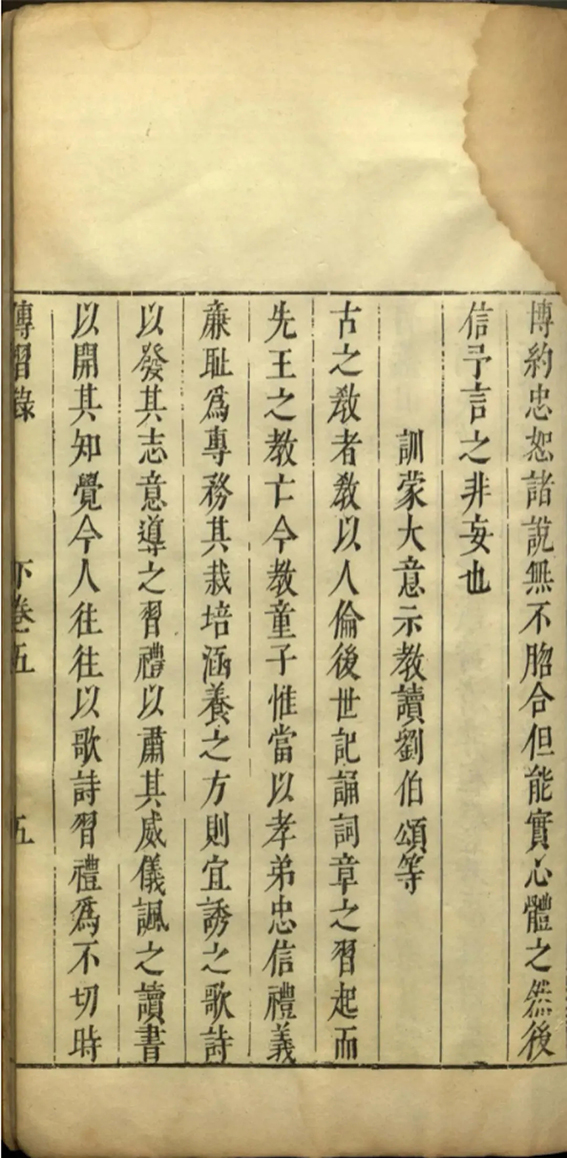 博約忠恕諸說無不脗合但能實心體之然後
信予言之非妄也
訓蒙大意示教讀劉伯頌等
古之教者教以人倫後世記誦詞章之習起而
先王之教亡今教童子惟當以孝弟忠信禮義
廉恥爲專務其栽培涵養之方則宜誘之歌詩
以發其志意導之習禮以肅其威儀諷之讀書
以開其知覺今人往往以歌詩習禮爲不切時
傳習錄 下卷五 五